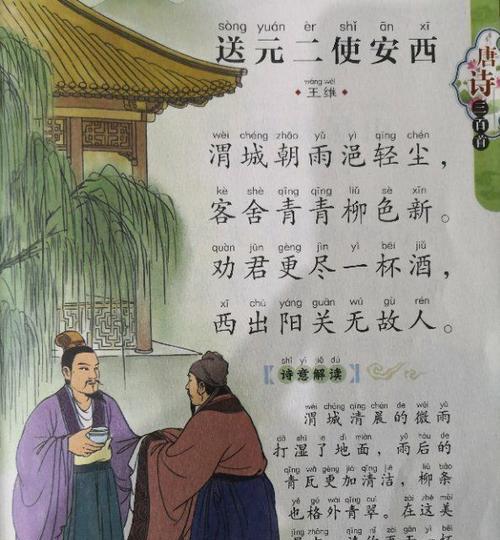 sòng yuán èr shǐ ān xī
送元二使安西
wáng wéi
王维
唐诗三百首
wèi chéng zhāo yǔ yì qīng chén
渭城朝雨浥轻尘，
kè shè qīng qīng liǔ sè xīn
客舍青青柳色新。
quàn jūn gèng jìn yì bēi jiǔ
劝君更尽一杯酒，
xī chū yáng guān wú gù rén
西出阳关无故人。
shī yì jiě dú
【诗意解读】
wèi chéng qīng chén de wēi yǔ
渭城清晨的微雨
dǎ shī le dì miàn yǔ hòu de
打湿了地面，雨后的
qīng wǎ gèng jiā qīng jié liǔ tiáo
青瓦更加清洁，柳条
yě gé wài qīng cuì zài zhè měi
也格外青翠。在这美